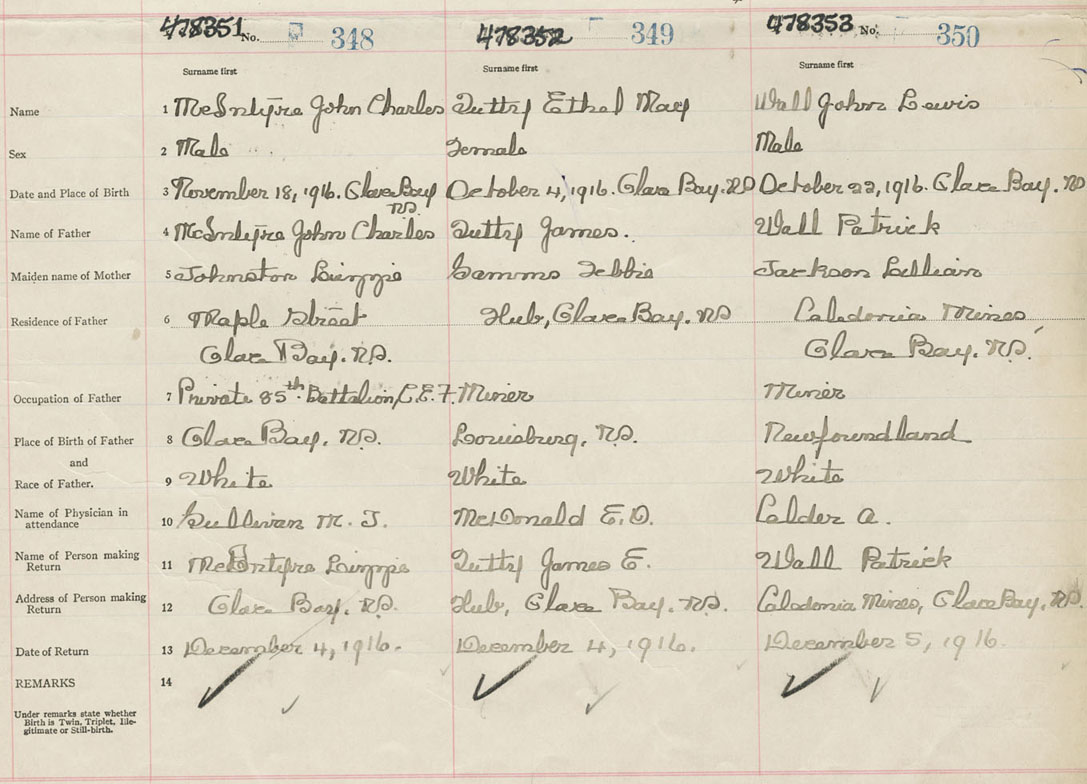 478351 No. 348 478352 349 478353 No. 350
Surname first Surname first Surname first
Name 1 McIntyre John Charles Tutty Ethel May Wall John Lewis
Sex 2 Male Female Male
Date and Place of Birth 3 November 18, 1916. Glace Bay October 4, 1916. Glace Bay. NS October 22, 1916. Glace Bay. NS
NS.
Name of Father 4 McIntyre John Charles Tutty James. Wall Patrick
Maiden name of Mother 5 Johnston Lizzie Samms Tebbie Jackson Lillian
Residence of Father 6 Maple Street Hub, Glace Bay. NS Caledonia Mines
Glace Bay. NS. Glace Bay. NS.
Occupation of Father 7 Private 85th Battalion, C.E.F. Miner Miner
Place of Birth of Father 8 Glace Bay. NS. Louisburg, NS. Newfoundland
and
Race of Father. 9 White White White
Name of Physician in
attendance 10 Sullivan M. T. McDonald E.O. Calder A.
Name of Person making
Return 11 McIntyre Lizzie Tutty James E. Wall Patrick
Address of Person making
Return 12 Glace Bay. NS. Hub, Glace Bay. NS. Caledonia Mines, Glace Bay, NS.
Date of Return 13 December 4, 1916. December 4, 1916. December 5, 1916.
REMARKS 14
Under remarks state whether
Birth is Twin, Triplet, Ille-
gitimate or Still-birth.